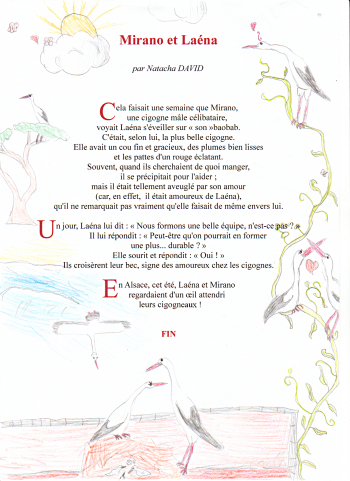 Mirano et Laéna
par Natacha DAVID
Cela faisait une semaine que Mirano,
une cigogne mâle célibataire,
voyait Laéna s'éveiller sur « son »baobab.
C'était, selon lui, la plus belle cigogne.
Elle avait un cou fin et gracieux, des plumes bien lisses
et les pattes d'un rouge éclatant.
Souvent, quand ils cherchaient de quoi manger,
il se précipitait pour l'aider ;
mais il était tellement aveuglé par son amour
(car, en effet, il était amoureux de Laéna),
qu'il ne remarquait pas vraiment qu'elle faisait de même envers lui.
Un jour, Laéna lui dit : « Nous formons une belle équipe, n'est-ce pas ? »
Il lui répondit : « Peut-être qu'on pourrait en former
une plus... durable ? »
Elle sourit et répondit : « Oui ! »
Ils croisèrent leur bec, signe des amoureux chez les cigognes.
En Alsace, cet été, Laéna et Mirano
regardaient d'un œil attendri
leurs cigogneaux !
FIN